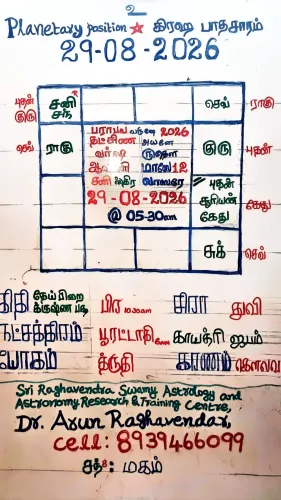 உ
Planetary position ★ கிரஹ பாதசாரம்
29-08-2026
புதன் குரு
சனி
சந்
செவ்
ராகு
செவ்
ராகு
பராபவ வருஷ 2026
தட்சிண அயன
வர்ஷ ருதொ
மாஸே 12
சனி ஸ்திர வாஸரே
29-08-2026
@ 05-30am
குரு
புதன்
// புதன்
சூரியன்
கேது
கேது
சுக்
செவ்
திதி தேய்பிறை கிருஷ்ண பக்ஷ பிர 10.30am சிரா துவி
நட்சத்திரம் பூரட்டாதி காயத்ரி ஜபம்
யோகம் த்ருதி கரணம் கௌலவ
Sri Raghavendra Swamy Astrology and
Astronomy Research & Training Centre,
Dr. Arun Raghavendar,
cell: 8939466099
சந் 8: மகம்